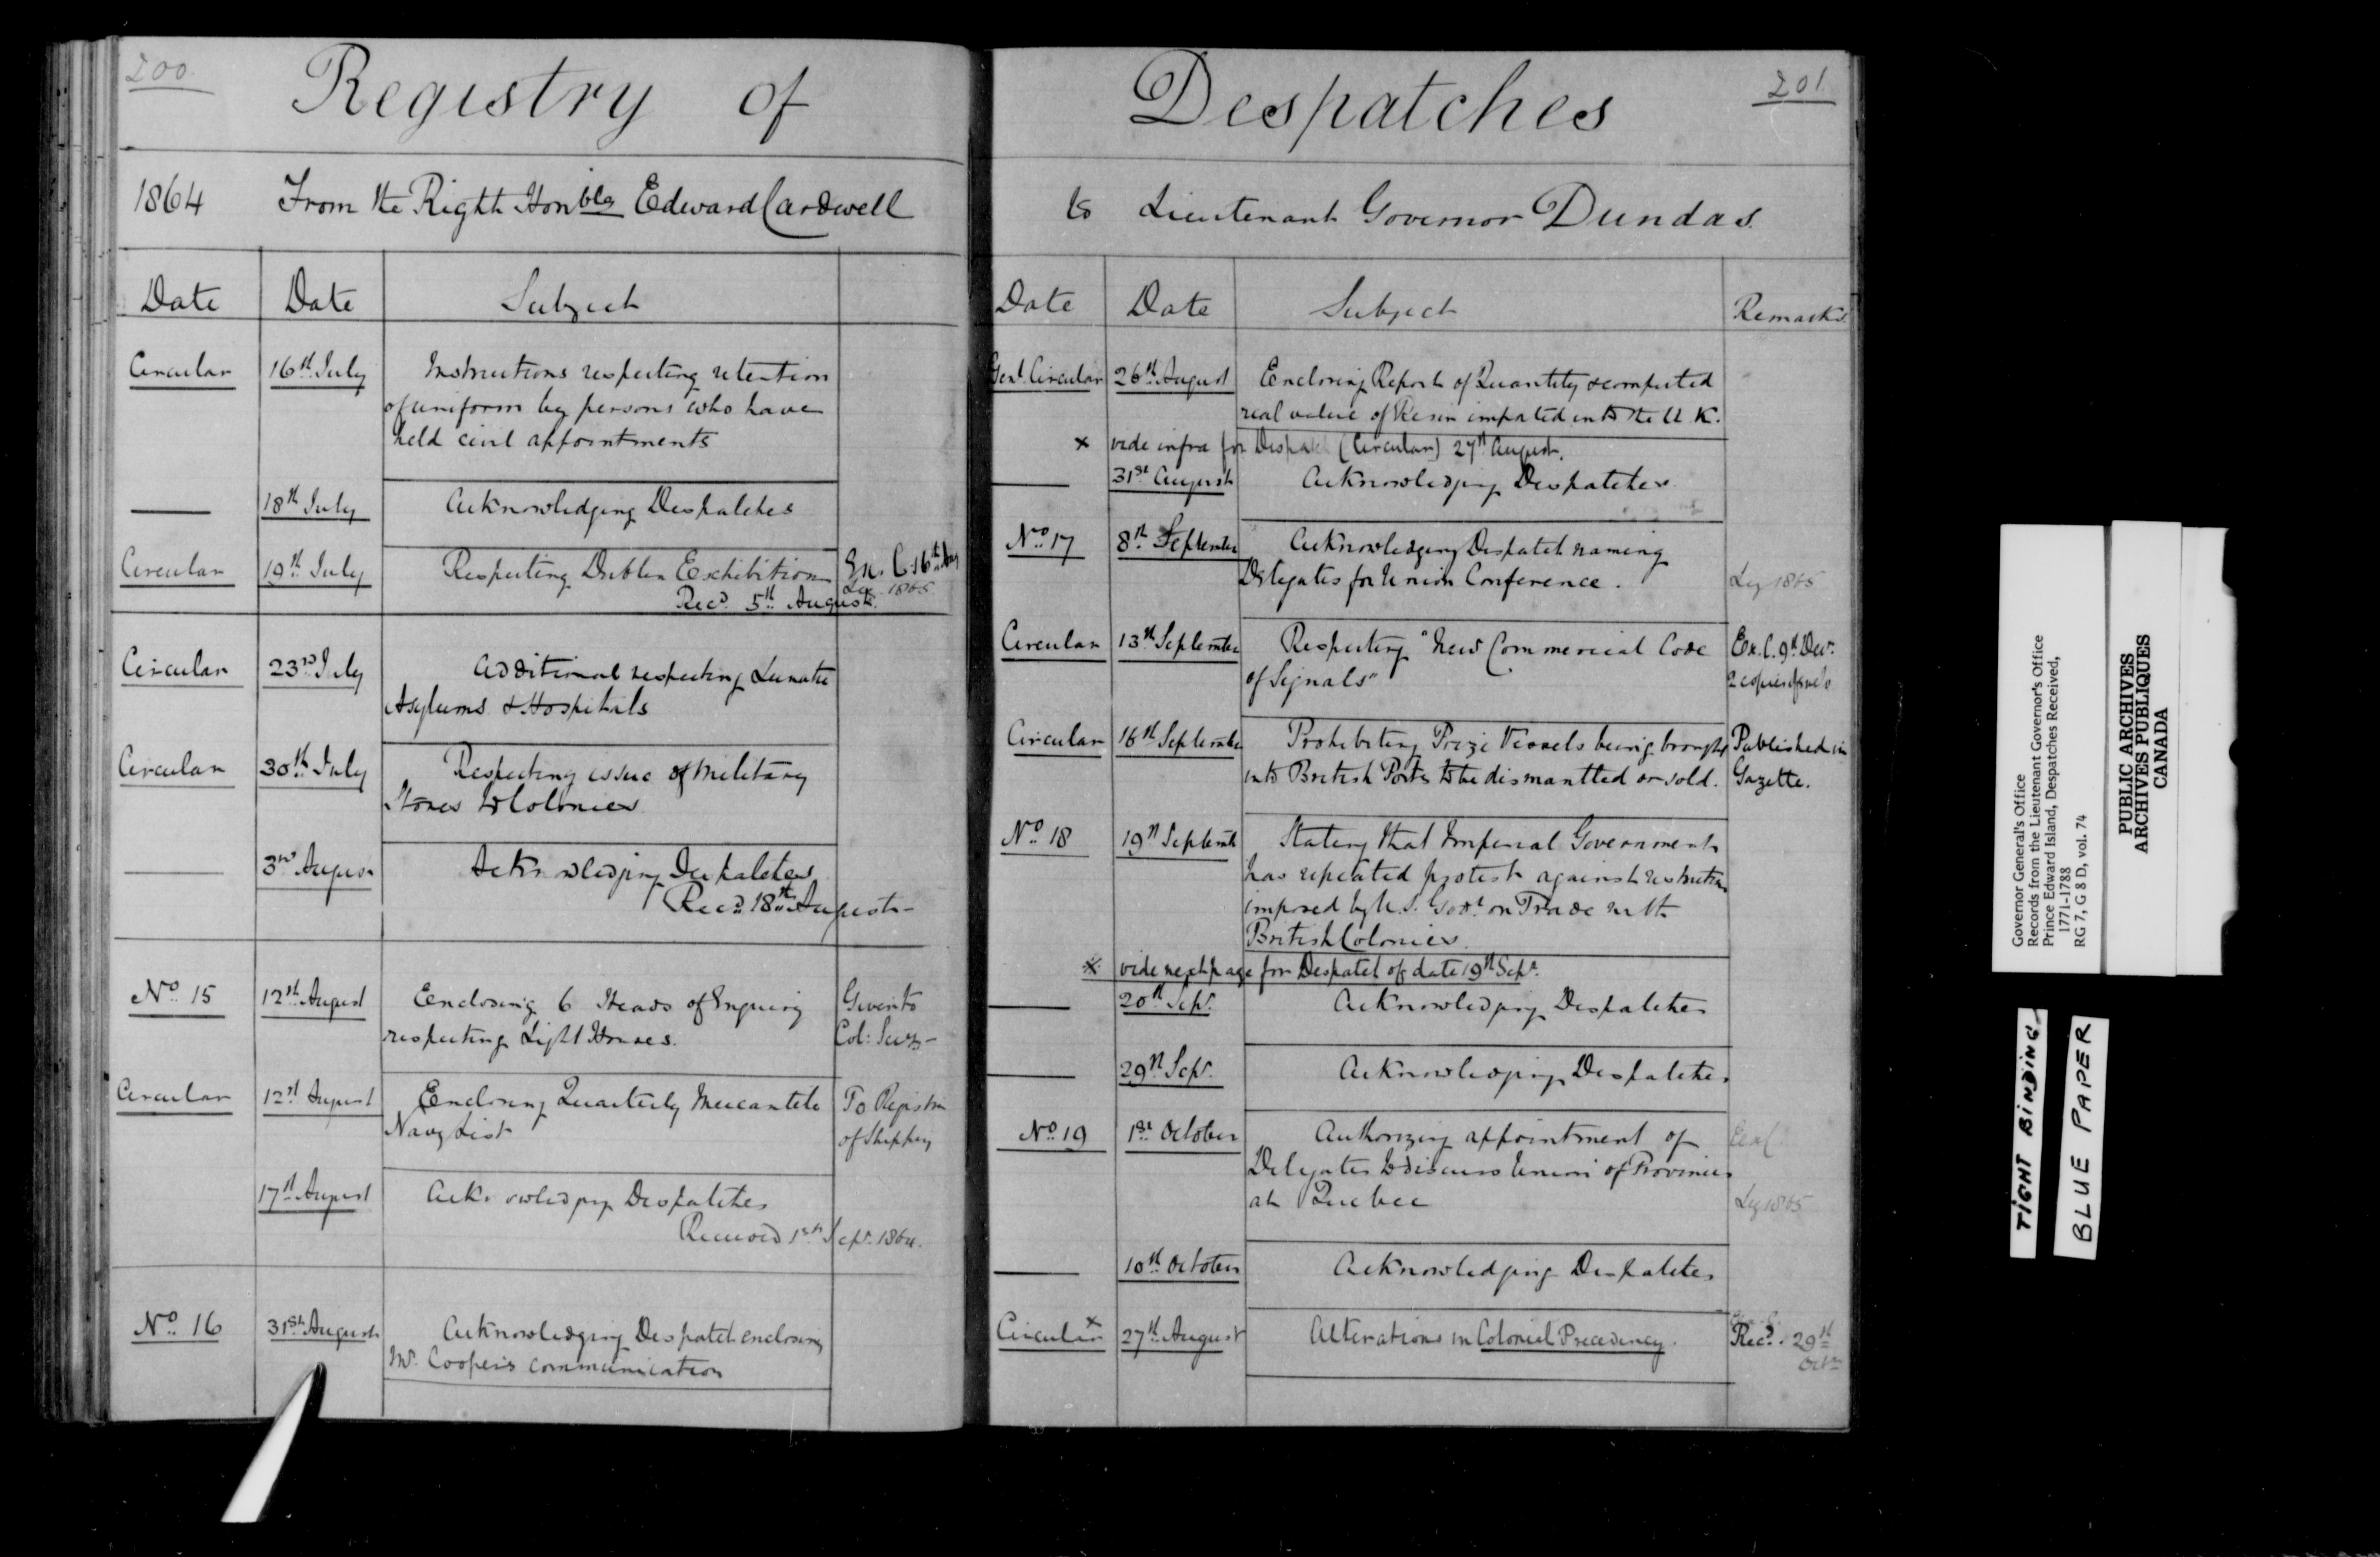 200
Registry of
1864 From the Right Honble Edward Cardwell
Date Date Subject
Circular 16th July Instructions respecting retention
of uniform by persons who have
held civil appointments
18th July Acknowledging Despatches
Circular 19th July Respecting Dublin Exhibition Ex. C. 16th
Leg. 1865
Recd. 5th August
Circular 23rd July Additional respecting Lunatic
Asylums & Hospitals
Circular 30th July Respecting issue of Military
Stores to Colonies
3rd August Acknowledging Despatches
Recd 18th August
No. 15 12th August Enclosing 6 Heads of Enquiry Given to
respecting Light Houses. Col: Secy
Circular 12th August Enclosing Quarterly Mercantile To Registrar
Navy List of Shipping
17th August Acknowledging Despatches
Received 1st Sept. 1864.
No. 16 31st August Acknowledging Despatch enclosing
Mr. Cooper's communication
201
Despatches
to Lieutenant Governor Dundas.
Date Date Subject Remarks
Genl. Circular 26th August Enclosing Report of Quantity & computed
real value of Resin imported into the U.K.
x vide infra for Despatch (Circular) 27th August.
31st August Acknowledging Despatches
No. 17 8th September Acknowledging Despatch naming
Delegates for Union Conference. Leg 1865
Circular 13th September Respecting "New Commercial Code Ex. C. 9th Decr.
of Signals" 2 copies
Circular 16th September Prohibiting Prize Vessels being brought Published in
into British Ports to be dismantled or sold. Gazette.
No. 18 19th September Stating that Imperial Government
has repeated protest against restrictions
imposed by U.S. Govt on Trade with
British Colonies.
x vide next page for Despatch of date 19th Sept.
20th Sept. Acknowledging Despatches
29th Sept. Acknowledging Despatches
No. 19 1st October Authorizing appointment of
Delegates to discuss Union of Provinces
at Quebec Leg 1865
10th October Acknowledging Despatches
Circular x 27th August Alterations in Colonial Precedency. Recd. 29th
Octr
Governor General's Office
Records from the Lieutenant Governor's Office
Prince Edward Island, Despatches Received,
1771-1788
RG 7, G 8 D, vol. 74
PUBLIC ARCHIVES
ARCHIVES PUBLIQUES
CANADA
TIGHT BINDING
BLUE PAPER